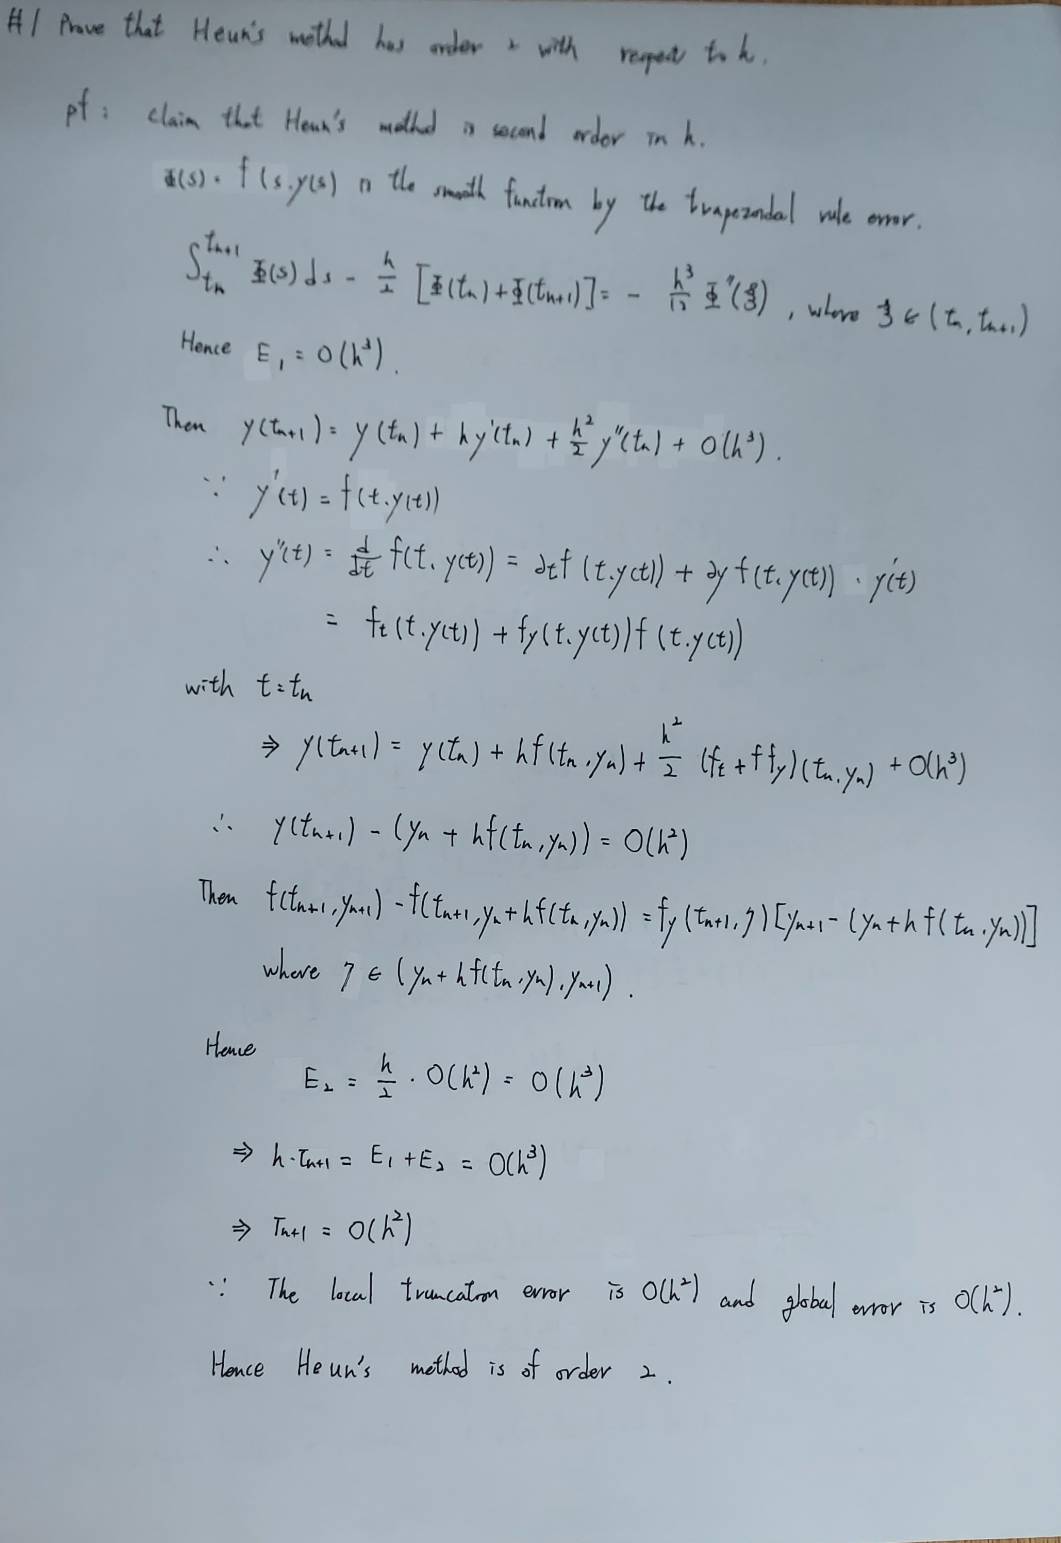 #1 Prove that Heun's method has order 2 with respect to h.
pf: claim that Heun's method is second order in h.
Φ(s) = f(s, y(s)) is the smooth function by the trapezoidal rule error.
∫_{tn}^{tn+1} Φ(s) ds - h/2 [Φ(tn) + Φ(tn+1)] = - h³/12 Φ''(ξ), where ξ ∈ (tn, tn+1)
Hence E₁ = O(h³).
Then y(tn+1) = y(tn) + h y'(tn) + h²/2 y''(tn) + O(h³).
∵ y'(t) = f(t, y(t))
∴ y''(t) = d/dt f(t, y(t)) = ∂t f(t, y(t)) + ∂y f(t, y(t)) · y'(t)
= ft(t, y(t)) + fy(t, y(t)) f(t, y(t))
with t = tn
⇒ y(tn+1) = y(tn) + hf(tn, yn) + h²/2 (ft + f fy)(tn, yn) + O(h³)
∴ y(tn+1) - (yn + hf(tn, yn)) = O(h²)
Then f(tn+1, yn+1) - f(tn+1, yn + hf(tn, yn)) = fy(tn+1, η) [yn+1 - (yn + h f(tn, yn))]
where η ∈ (yn + hf(tn, yn), yn+1).
Hence
E₂ = h/2 · O(h²) = O(h³)
⇒ h · τn+1 = E₁ + E₂ = O(h³)
⇒ τn+1 = O(h²)
∵ The local truncation error is O(h²) and global error is O(h²).
Hence Heun's method is of order 2.